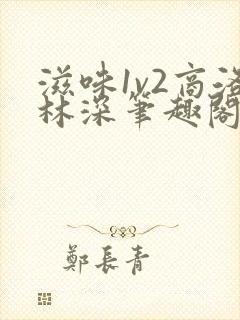 滋味1v2高洛
林深笔趣阁
鄭長青